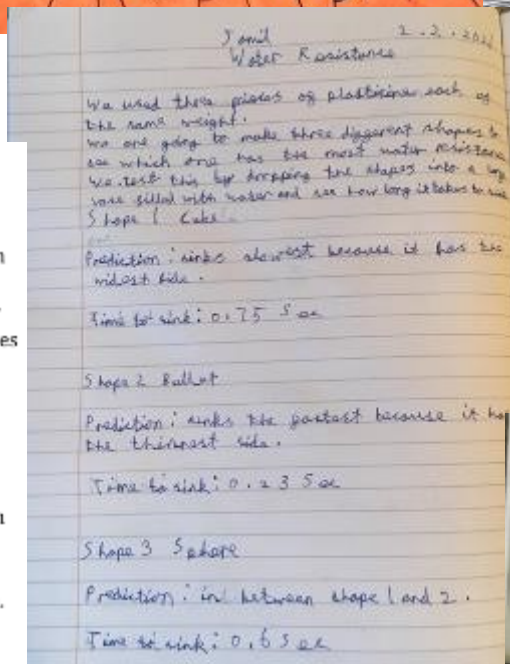 Jamil 2.2.202
Water Resistance
We used three pieces of plasticine each of
the same weight.
we are going to make three different shapes to
see which one has the most water resistance
We test this by dropping the shapes into a
vase filled with water and see how long it takes to sink
Shape 1 Cube
Prediction: sinks slowest because it has the
widest side.
Time to sink: 0.75 Sec
Shape 2 Bullet
Prediction: sinks the fastest because it ha
the thinnest side.
Time to sink: 0.23 Sec
Shape 3 Sphere
Prediction: in between shape 1 and 2.
Time to sink: 0.6 Sec
es